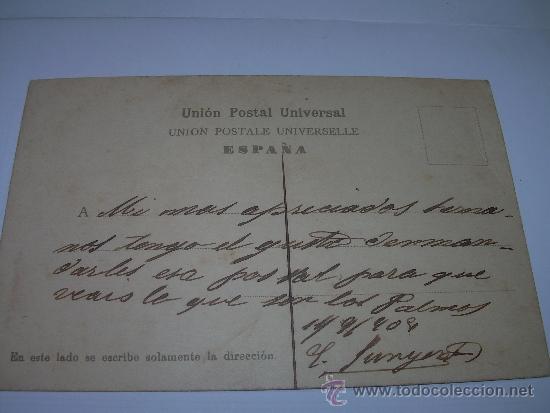 Unión Postal Universal
UNION POSTALE UNIVERSELLE
ESPAÑA
A Mi mas apreciados herma-
nos tengo el gusto de man-
darles esa postal para que
veais lo que son los Palmos
E. Junyent
En este lado se escribe solamente la dirección.
todocoleccion.net